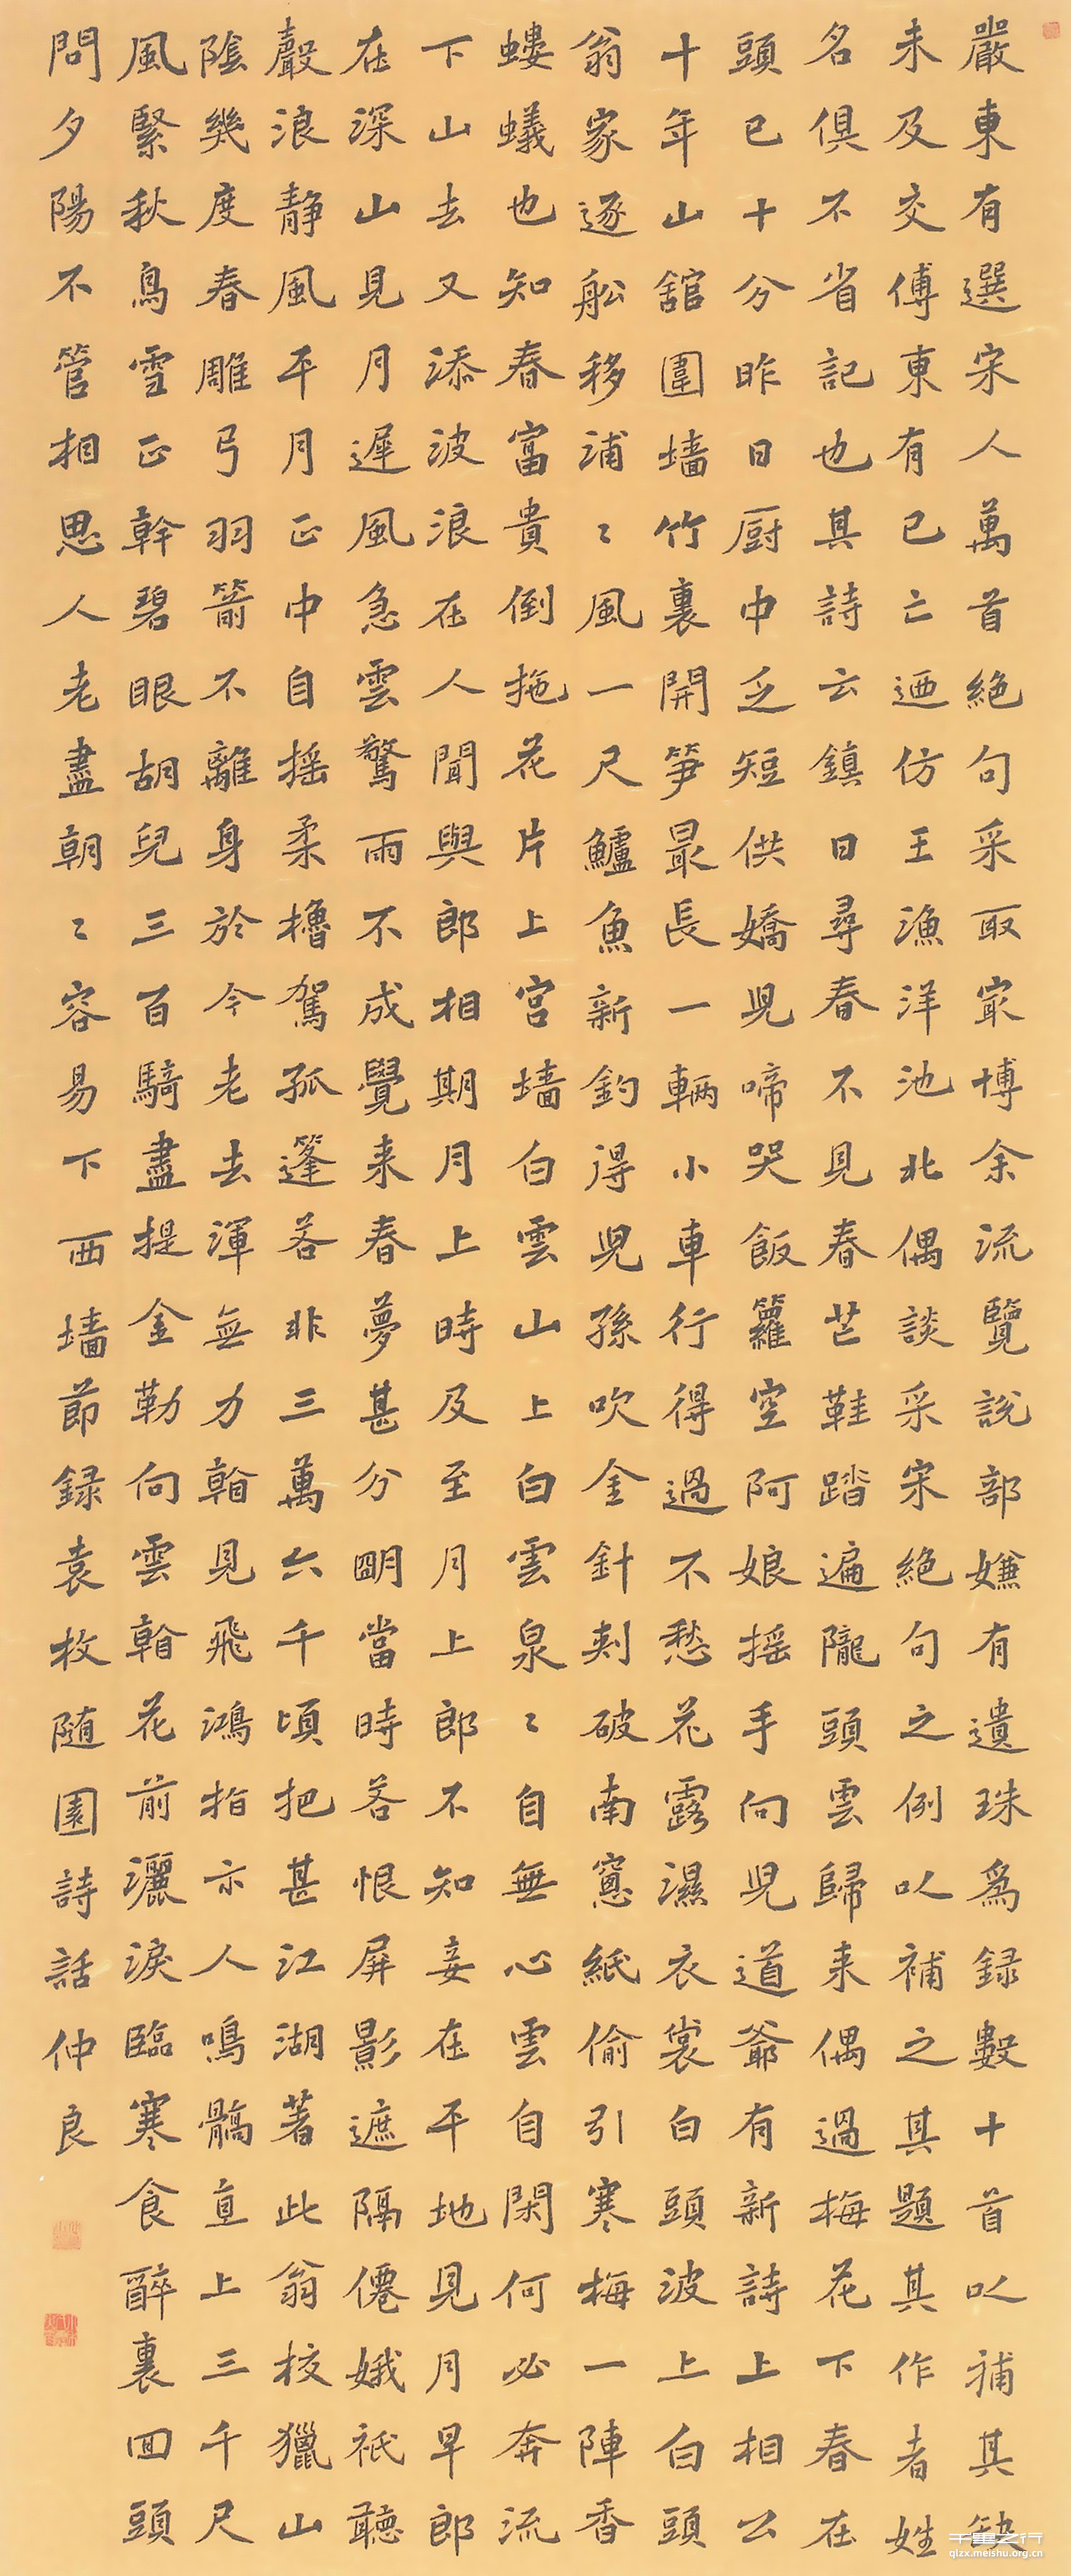 嚴東有選宋人萬首絕句采取宷博余流覽說部嫌有遺珠為録數十首以補其缺
未及交傅東有已亡迺仿王漁洋池北偶談采宋絕句之例以補之其題其作者姓
名俱不省記也其詩云鎮日尋春不見春芒鞋踏遍隴頭雲歸来偶過梅花下春在
頭已十分昨日厨中乏短供嬌兒啼哭飯籮空阿娘摇手向兒道爺有新詩上相公
十年山舘圍墻竹裏開笋最長一輛小車行得過不愁花露濕衣裳白頭波上白頭
翁家逐船移浦〻風一尺鱸魚新釣得兒孫吹金針刺破南窻紙偷引寒梅一陣香
螻蟻也知春富貴倒拖花片上宫墻白雲山上白雲泉〻自無心雲自閑何必奔流
下山去又添波浪在人間與郎相期月上時及至月上郎不知妾在平地見月早郎
在深山見月遲風急雲驚雨不成覺来春夢甚分明當時若恨屏影遮隔僊娥衹聽
聲浪静風平月正中自摇柔櫓駕孤篷若非三萬六千頃把甚江湖著此翁校獵山
陰幾度春雕弓羽箭不離身於今老去渾無力翰見飛鴻指示人鳴髇直上三千尺
風緊秋鳥雪正幹碧眼胡兒三百騎盡提金勒向雲翰花前灑淚臨寒食醉裏回頭
問夕陽不管相思人老盡朝〻容易下西墻節録袁枚随園詩話仲良
千里之行
qlzx.meishu.org.cn